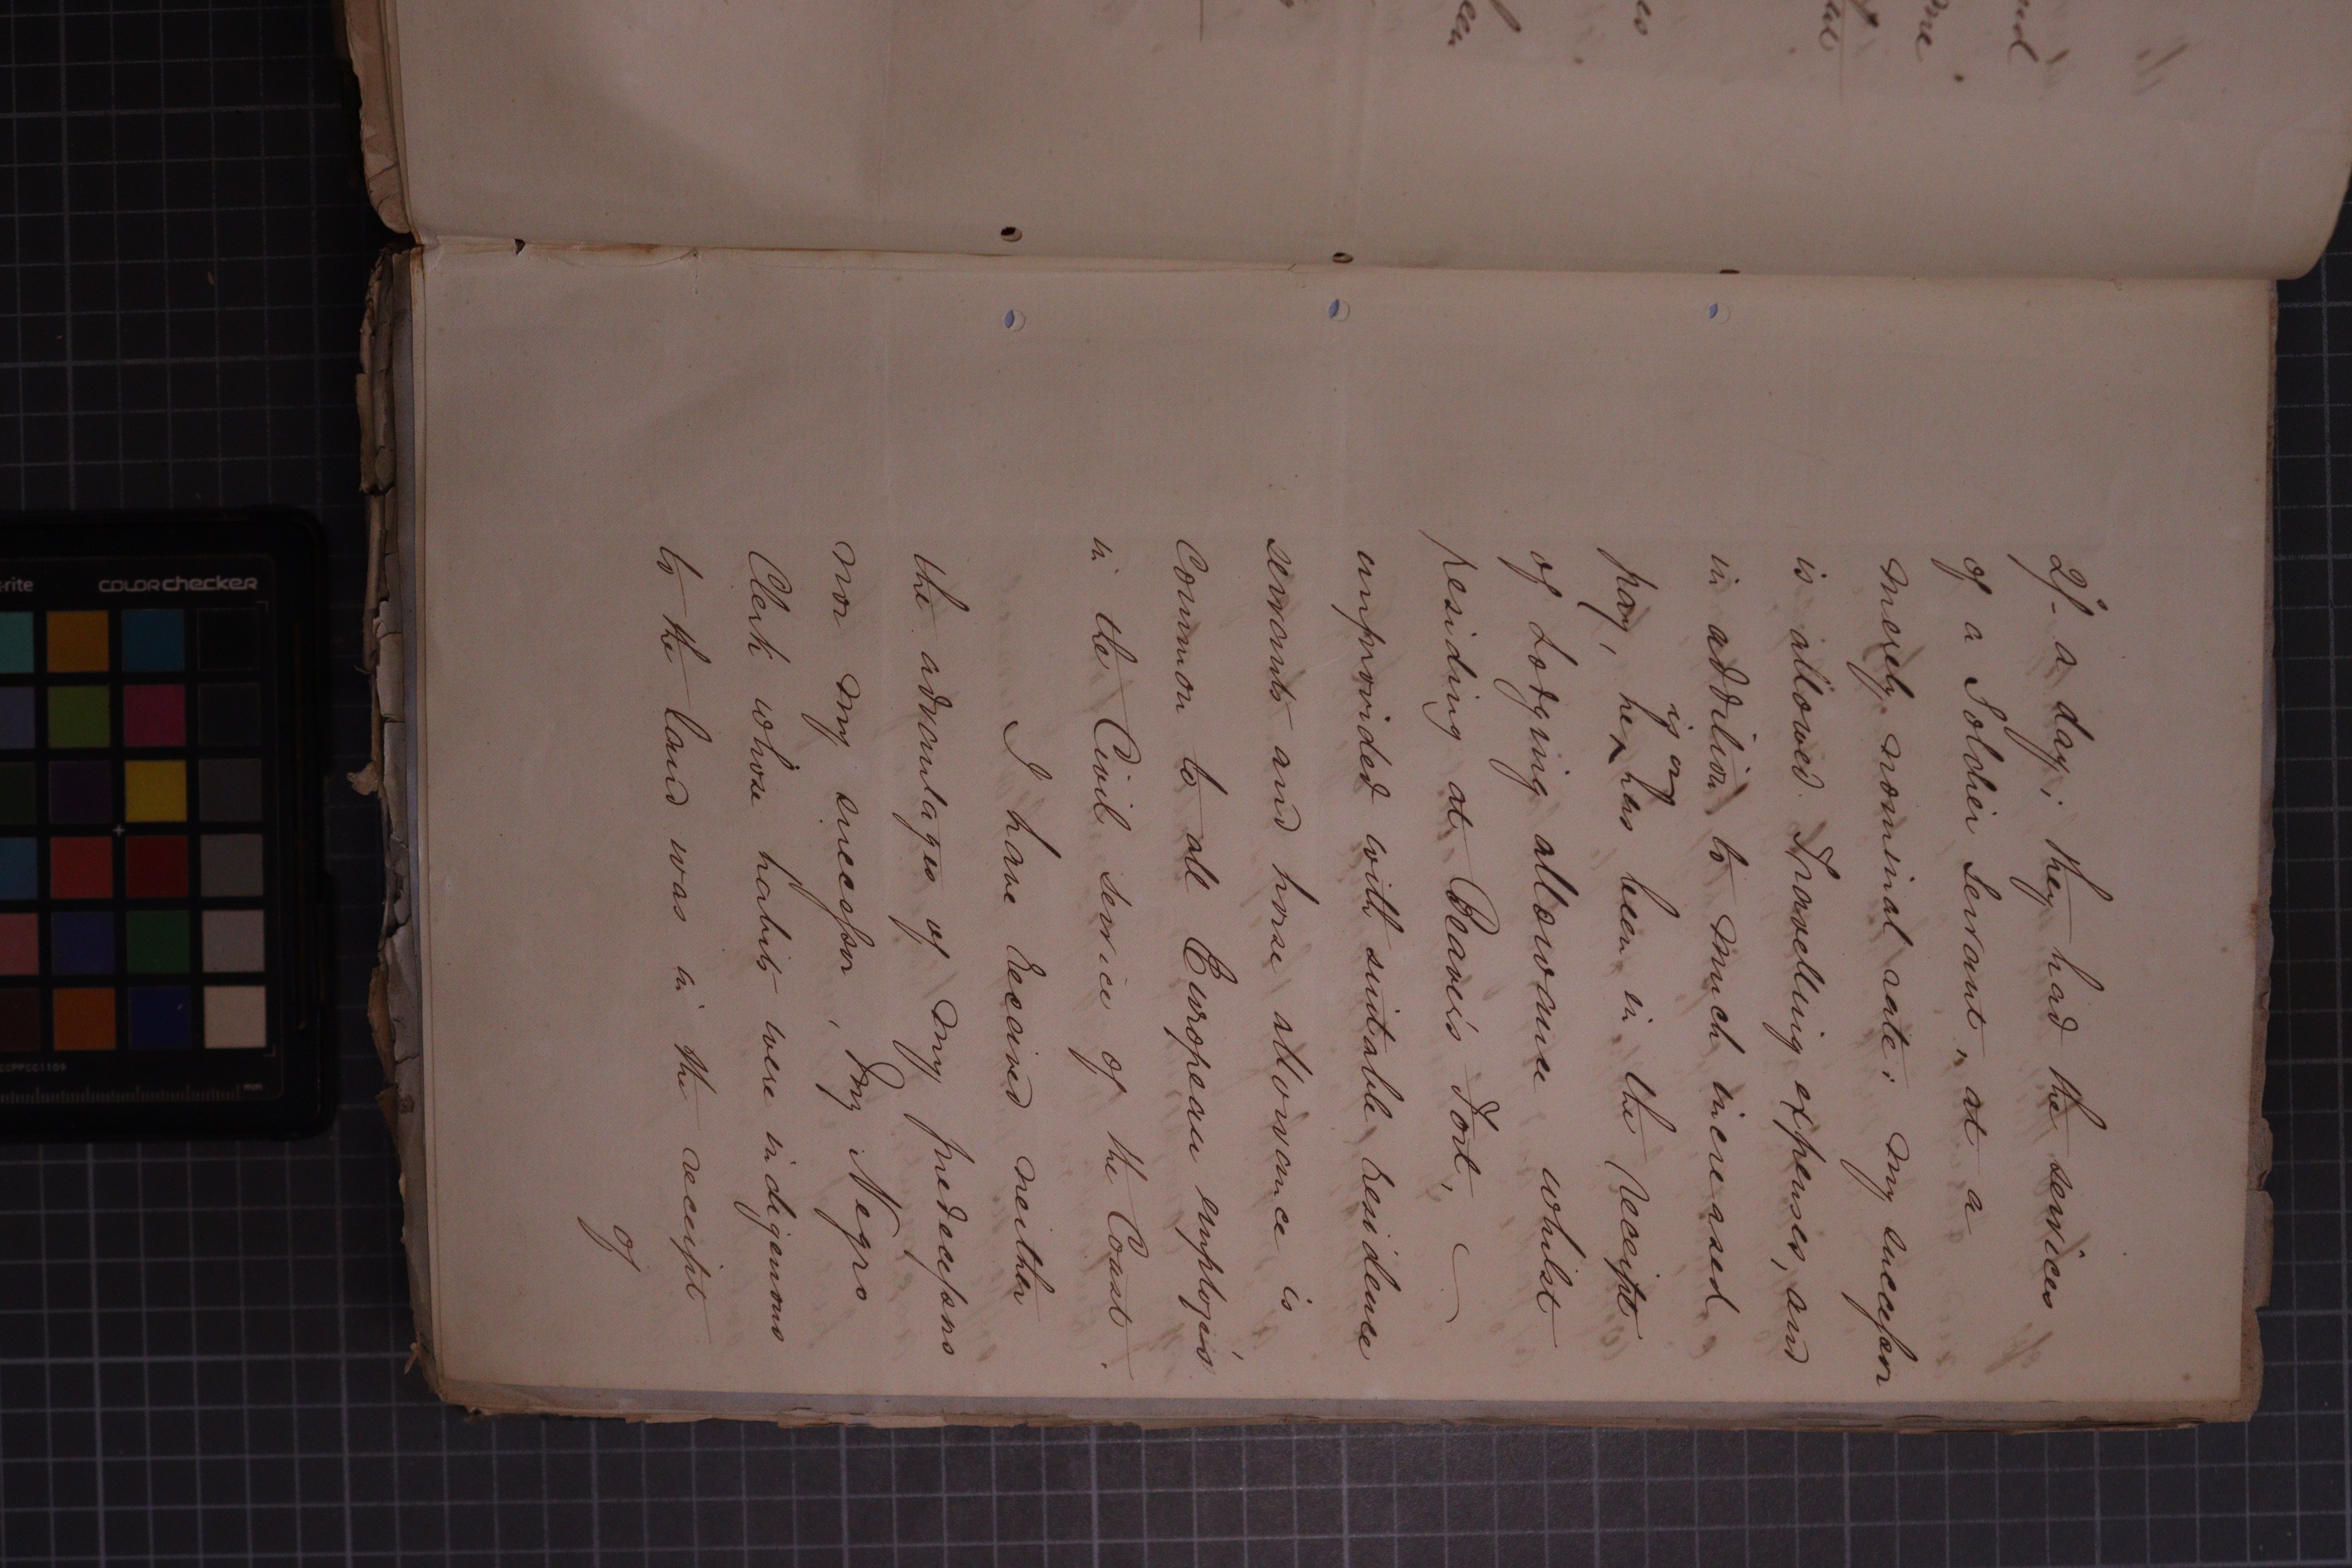 2/- a day; they had the services
of a Soldier Servant, at a
merely nominal rate: my successor
is allowed Travelling expenses, and
in addition to much increased
is or
pay, he has been in the receipt
of Lodging allowance whilst
residing at Beaver's Fort,
unprovided with suitable residence
servants and horse allowance is
common to all European employés
in the Civil service of the Coast.
I have received neither
the advantages of my predecessors
nor my successor, my Negro
Clerk whose habits were indigenous
to the land was in the receipt
of
and
me.
colorchecker
-rite
mm